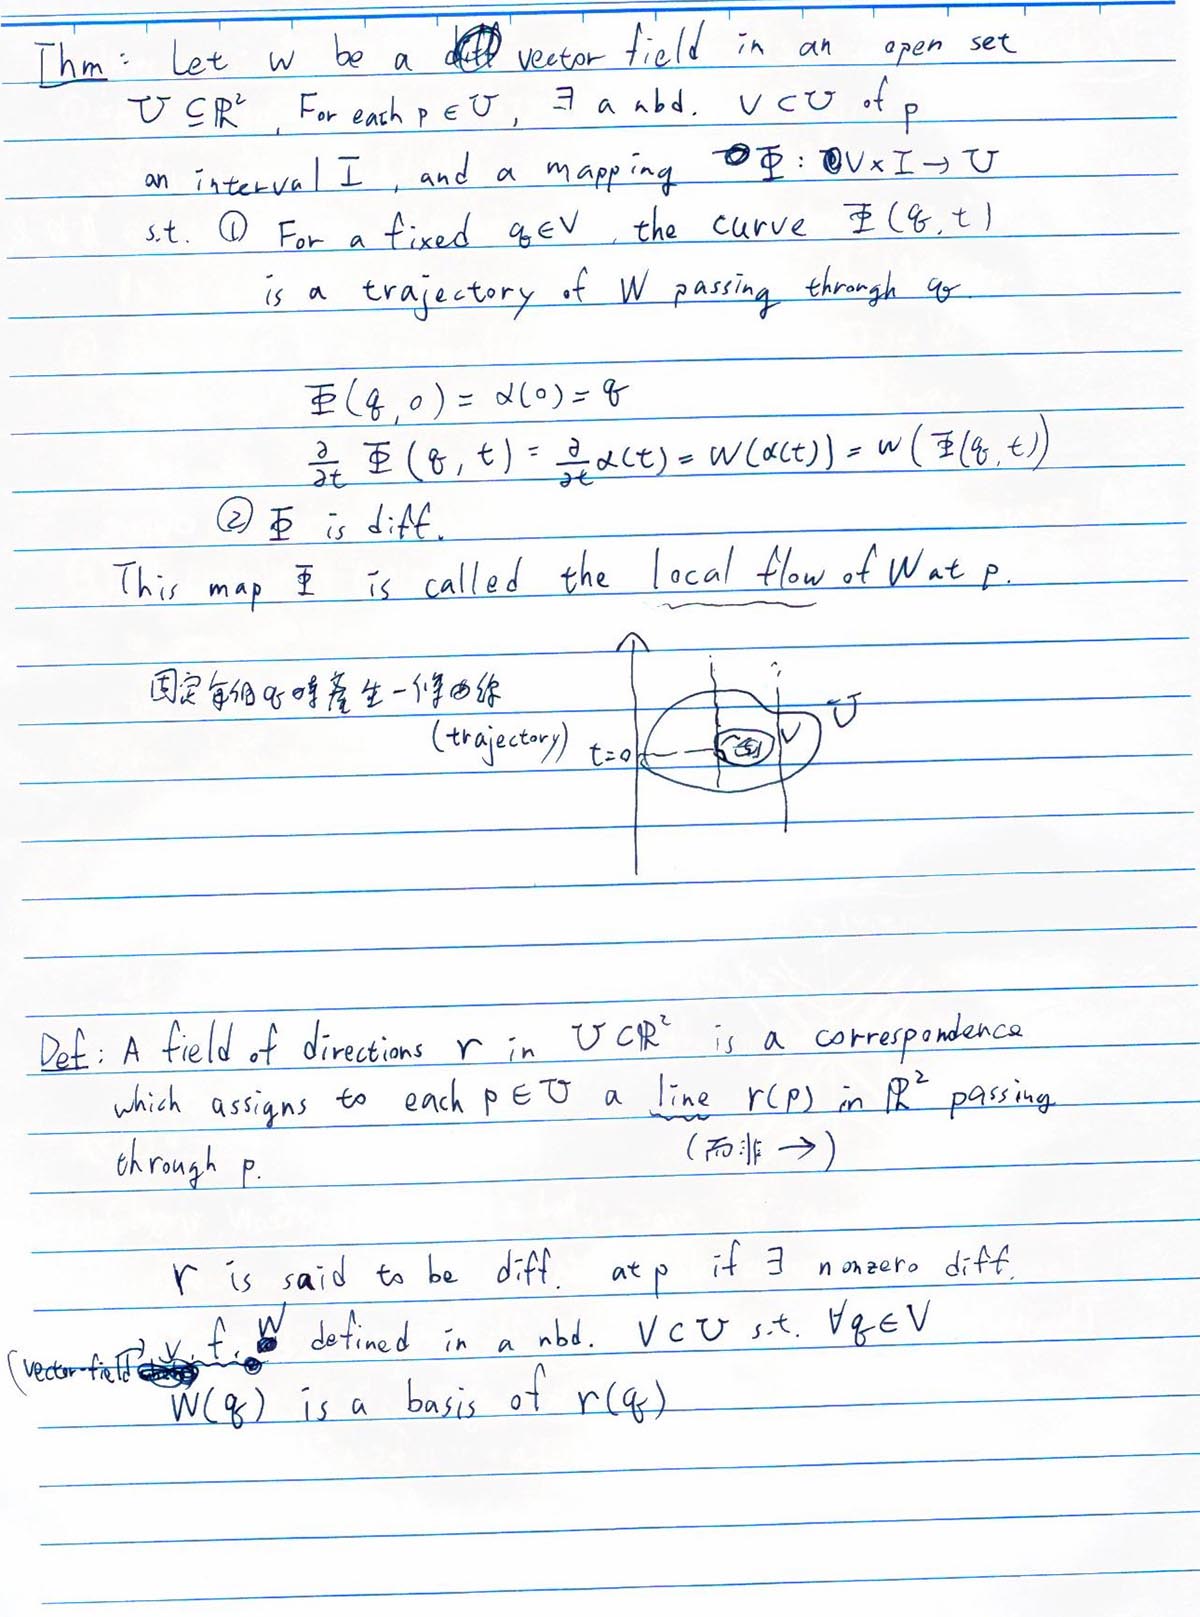 Thm: Let w be a vector field in an open set
U ⊆ ℝ², For each p ∈ U, ∃ a nbd. V ⊂ U of p
an interval I, and a mapping Φ: V × I → U
s.t. ① For a fixed q ∈ V, the curve Φ(q, t)
is a trajectory of W passing through q.
Φ(q, 0) = α(0) = q
∂/∂t Φ(q, t) = ∂/∂t α(t) = W(α(t)) = w(Φ(q, t))
② Φ is diff.
This map Φ is called the local flow of W at p.
固定每個 q 時產生一條曲線
(trajectory)
t=0
V
U
Def: A field of directions r in U ⊂ ℝ² is a correspondence
which assigns to each p ∈ U a line r(p) in ℝ² passing
through p.
(而非 →)
r is said to be diff. at p if ∃ nonzero diff.
(vector-field) v.f. W defined in a nbd. V ⊂ U s.t. ∀q ∈ V
W(q) is a basis of r(q)